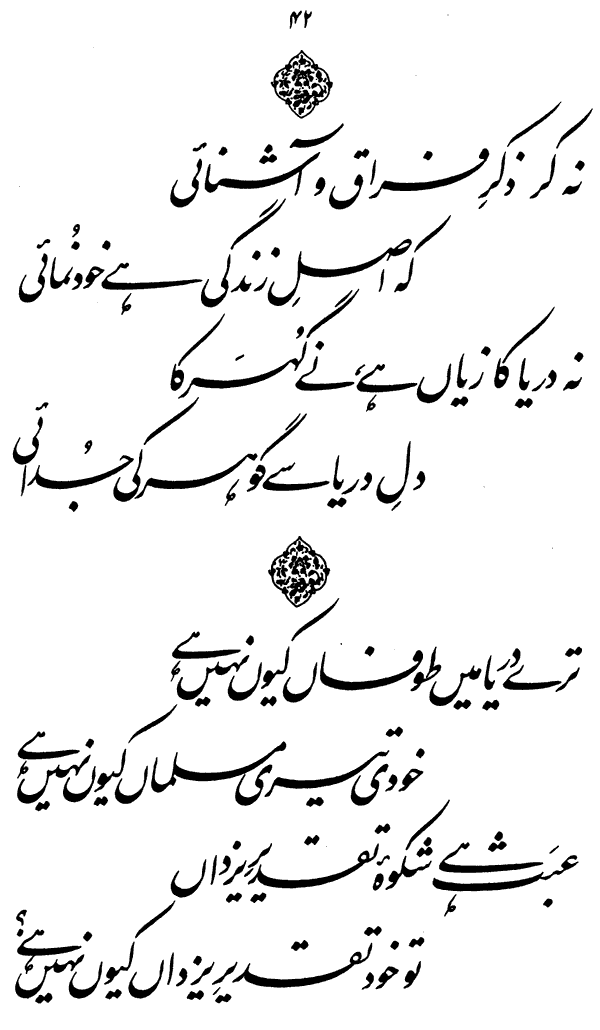 ۴۲
نہ کر ذکرِ فراق و آشنائی
کہ اصلِ زندگی ہے خود نُمائی
نہ دریا کا زیاں ہے، نے گُہَر کا
دلِ دریا سے گوہر کی جُدائی
ترے دریا میں طوفاں کیوں نہیں ہے
خودی تیری مسلماں کیوں نہیں ہے
عبَث ہے شکوۂ تقدیرِ یزداں
تو خود تقدیرِ یزداں کیوں نہیں ہے؟